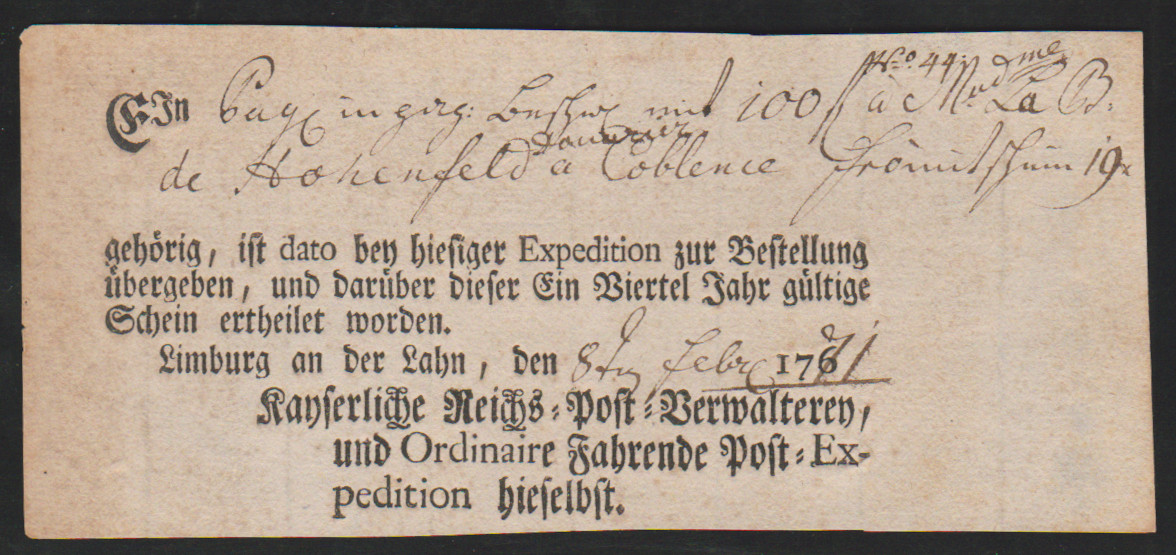 No. 44. me
EIn Pagx in grg: Beschw mit 100 f a Mad La B:
Douarier
de Hohenfeld a Coblence franco mit schein 19 x
gehörig, ist dato bey hiesiger Expedition zur Bestellung
übergeben, und darüber dieser Ein Viertel Jahr gültige
Schein ertheilet worden.
Limburg an der Lahn, den 8ten Febr 1771
Kayserliche Reichs-Post-Verwalterey,
und Ordinaire Fahrende Post-Ex-
pedition hieselbst.